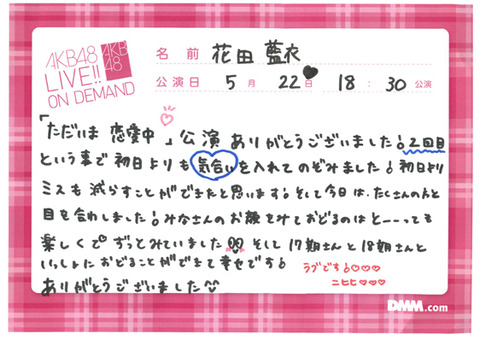 AKB48
LIVE!!
ON DEMAND
AKB
48
名前 花田 藍衣
公演日 5月 22日 18:30公演
「ただいま 恋愛中」公演 ありがとうございました! 2回目
という事で初日よりも 気合い を入れてのぞみました! 初日より
ミスも減らすことができたと思います! そして今日は、たくさんの人と
目を合わしました! みなさんのお顔をみておどるのはとーーっても
楽しくて ずっとみていました そして 17期さんと18期さんと
いっしょに おどることができて幸せです!
ラブです!♡♡♡
ニヒヒ♡♡♡
ありがとうございました
DMM.com